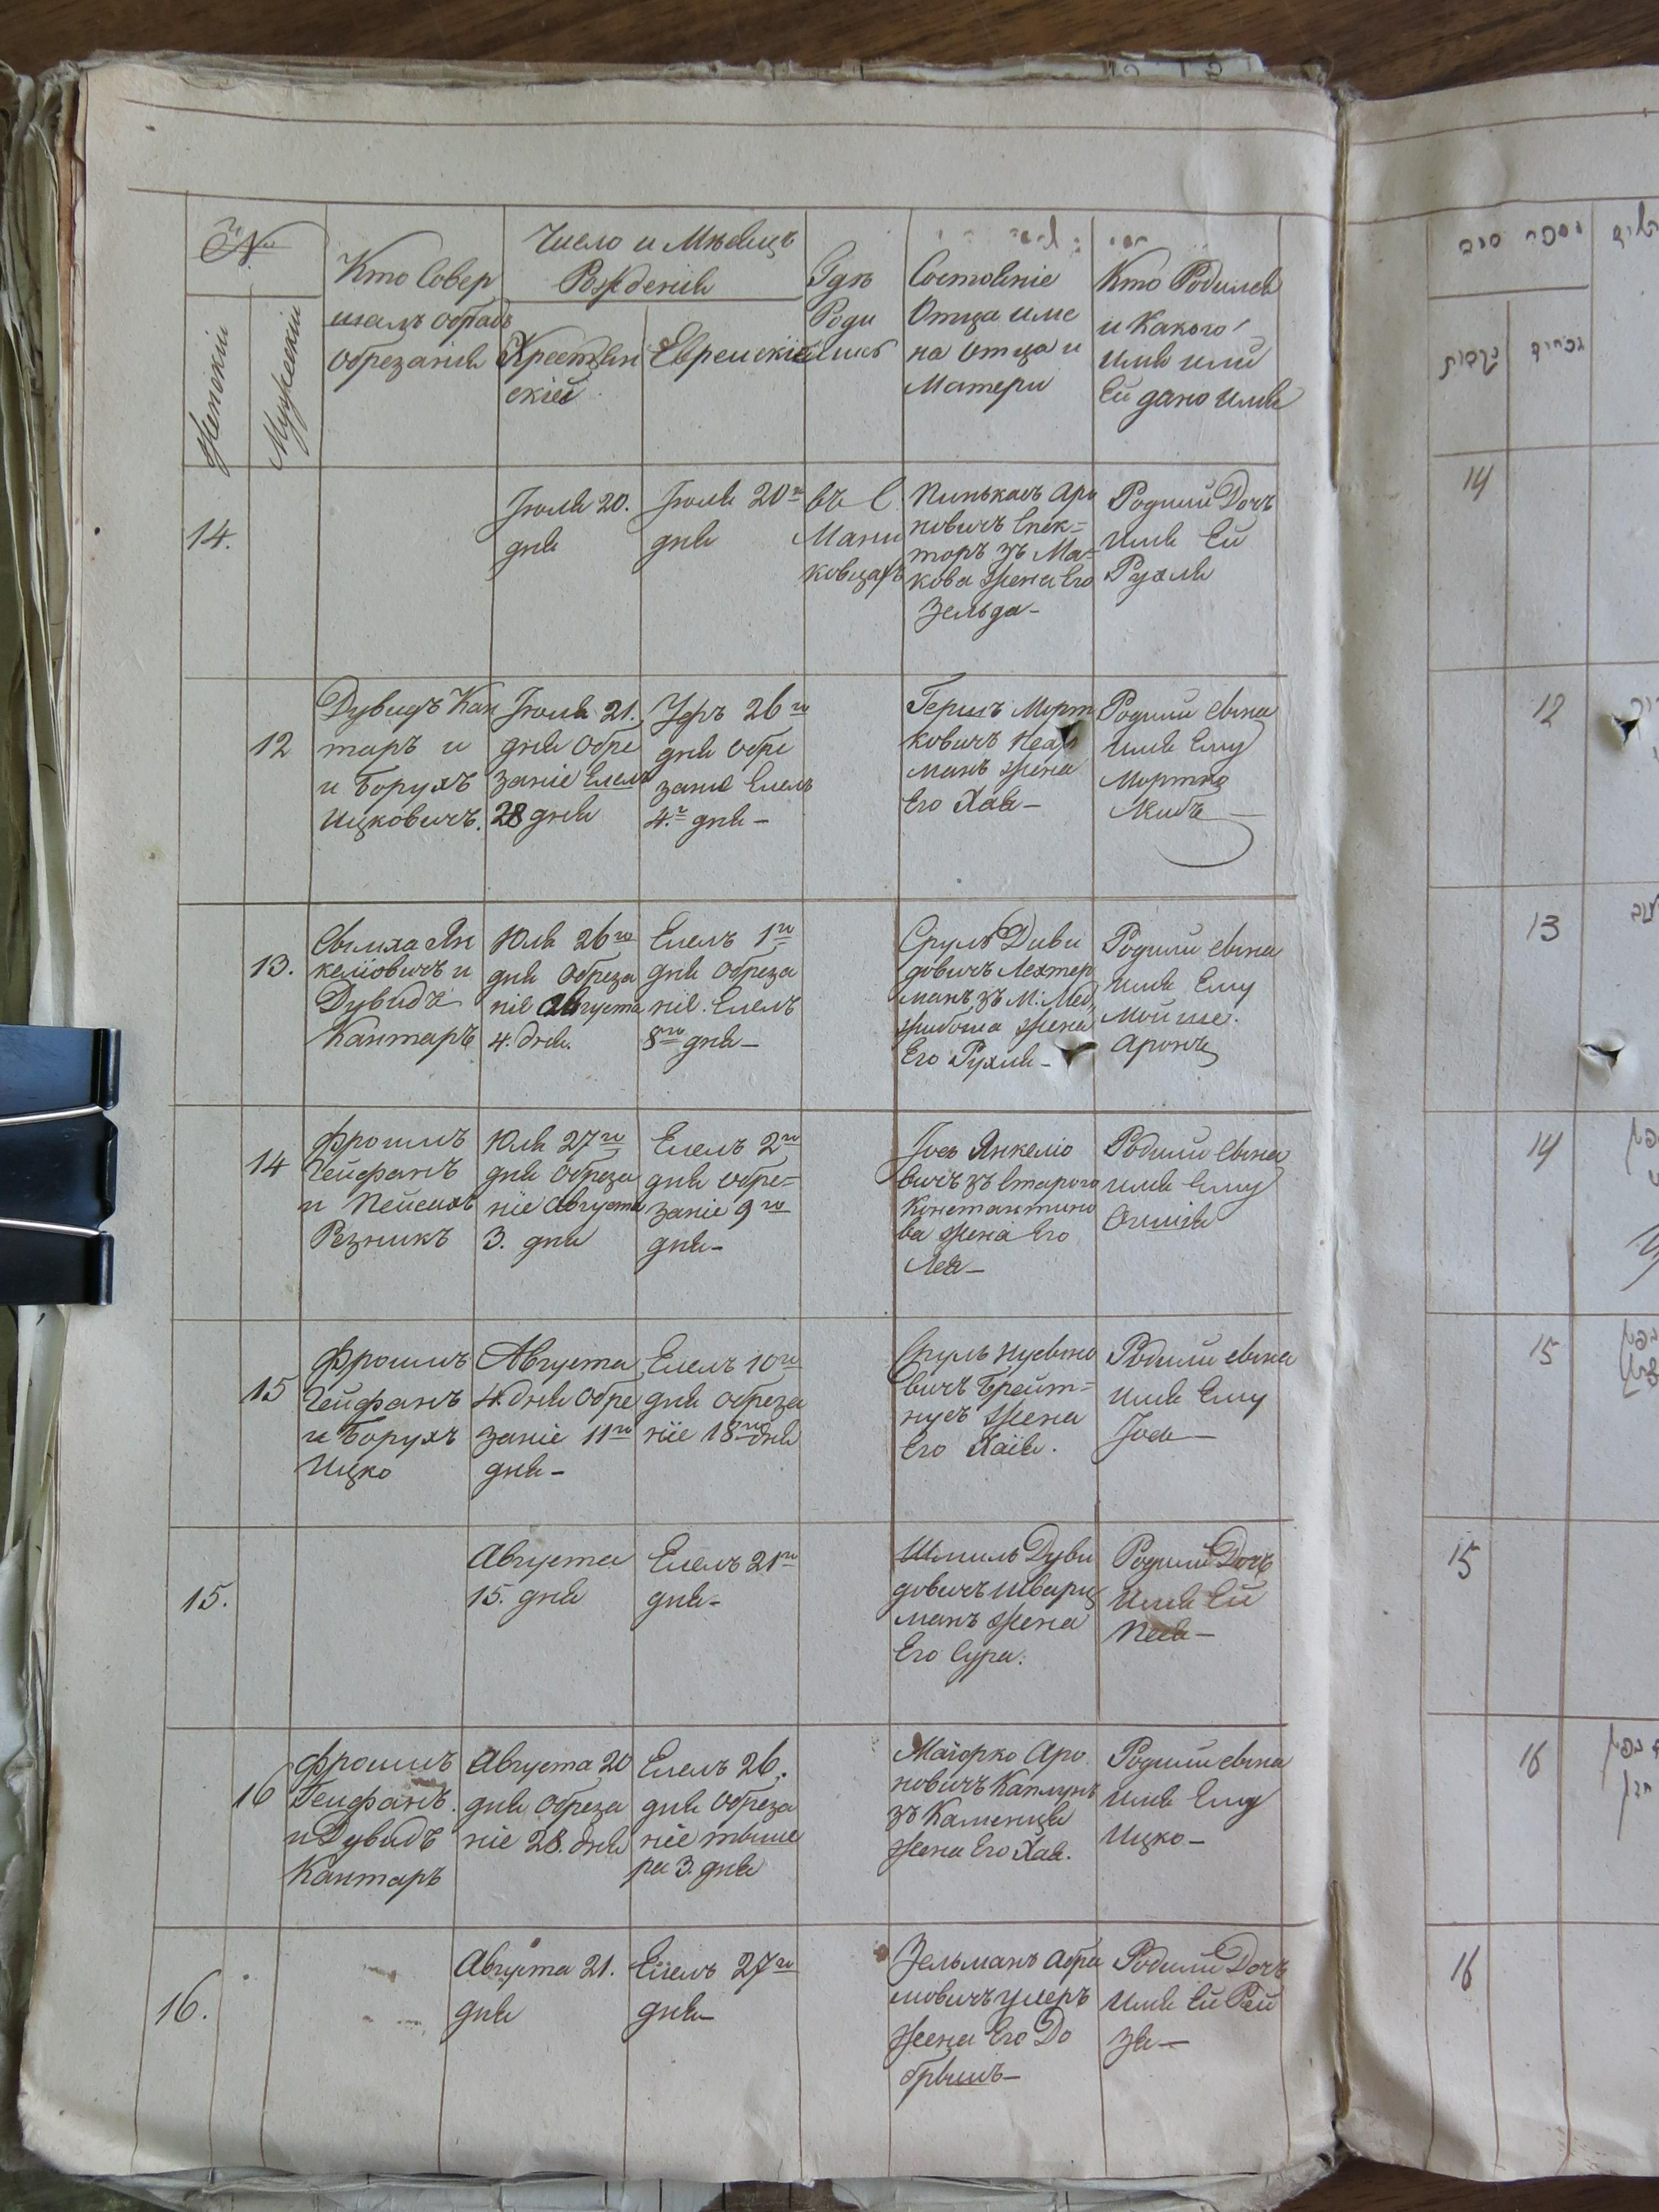 №
Женскій
Мужескій
Кто Совер
шалъ обрадъ
обрезанія
Число и Мѣсяцъ
Рожденія
Хрестіян
скій
Еврейскій
Гдѣ
Роди
лись
Состояніе
Отца име
на отца и
Матери
Кто Родился
и Какого
имя или
Ей дано имя
14.
Іюля 20.
дня
Іюля 20го
дня
въ С.
Мани
ковцахъ
Пинькасъ Аро
новичъ Спек=
торъ зъ Ма=
кова жена Его
Зельда-
Родили Дочь
имя Ей
Рухля
12
Дувидъ Кан
таръ и
и Борухъ
Ицковичъ.
Іюля 21.
дня Обре
заніе
28 дня
26го
дня обре
заніе Елелъ
4го дня-
Гершъ Морт
ковичъ
манъ жена
Его Хая-
Родили сына
имя Ему
Мортко
Лейбъ-
13.
Симха Ян
келіовичъ и
Дувидъ
Кантаръ
Юля 26го
дня Обреза
ніе Августа
4. дня.
Елелъ 1го
дня Обреза
ніе. Елелъ
8го дня-
Сруль Диви
довичъ Лехтер
манъ зъ М: Мед
жибожа жена
Его Рухля-
Родили сына
имя Ему
Мойше.
Аронъ
14
Фроимъ
Гейфанъ
и Пейсахъ
Резникъ
Юля 27го
дня Обреза
ніе Августа
3. дня
Елелъ 2го
дня обре=
заніе 9го
дня-
Іось Янкеліо
вичъ зъ Старого
Константино
ва жена Его
Лея-
Родили сына
имя Ему
15
Фроимъ
Гейфанъ
и Борухъ
Ицко
Августа
4. дня Обре
заніе 11го
дня-
Елелъ 10го
дня обреза
ніе 18го дня
Сруль Нусыно
вичъ Брейт=
нусъ жена
Его Хаія.
Родили сына
имя Ему
Іось-
15.
Августа
15. дня
Елелъ 21го
дня-
Шмиль Дуви
довичъ Шварц
манъ жена
Его Сура.
Родили Дочь
Имя Ей
Песя-
16
Фроимъ
Гейфанъ.
и Дувидъ
Кантаръ
Августа 20
дня Обреза
ніе 28. дня
Елелъ 26.
дня Обреза
ніе тыше
ра 3. дня
Маіорко Аро
новичъ Каплунъ
зъ Каменца
жена Его Хая.
Родили сына
имя Ему
Ицко-
16.
Августа 21.
дня
Елелъ 27го
дня-
Зельманъ Абра
мовичъ умеръ
жена Его До
брышъ-
Родили Дочь
имя Ей Рей
зя-
14
12
13
14
15
15
16
16